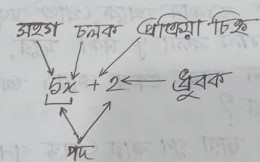 সহগ চলক প্রক্রিয়া চিহ্ন
5x + 2 ধ্রুবক
পদ